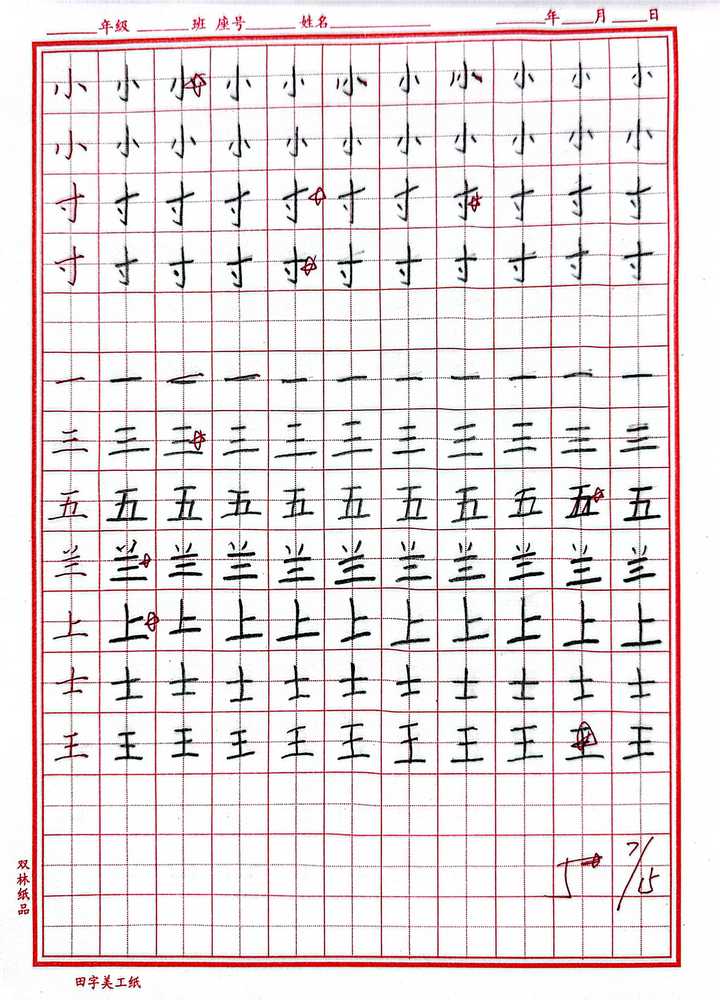 年级 班 座号 姓名 年 月 日
小 小 小 小 小 小 小 小 小 小 小
小 小 小 小 小 小 小 小 小 小 小
寸 寸 寸 寸 寸 寸 寸 寸 寸 寸 寸
寸 寸 寸 寸 寸 寸 寸 寸 寸 寸 寸
一 一 一 一 一 一 一 一 一 一 一
三 三 三 三 三 三 三 三 三 三 三
五 五 五 五 五 五 五 五 五 五 五
兰 兰 兰 兰 兰 兰 兰 兰 兰 兰 兰
上 上 上 上 上 上 上 上 上 上 上
士 士 士 士 士 士 士 士 士 士 士
王 王 王 王 王 王 王 王 王 王 王
5 7/15
双林纸品
田字美工纸